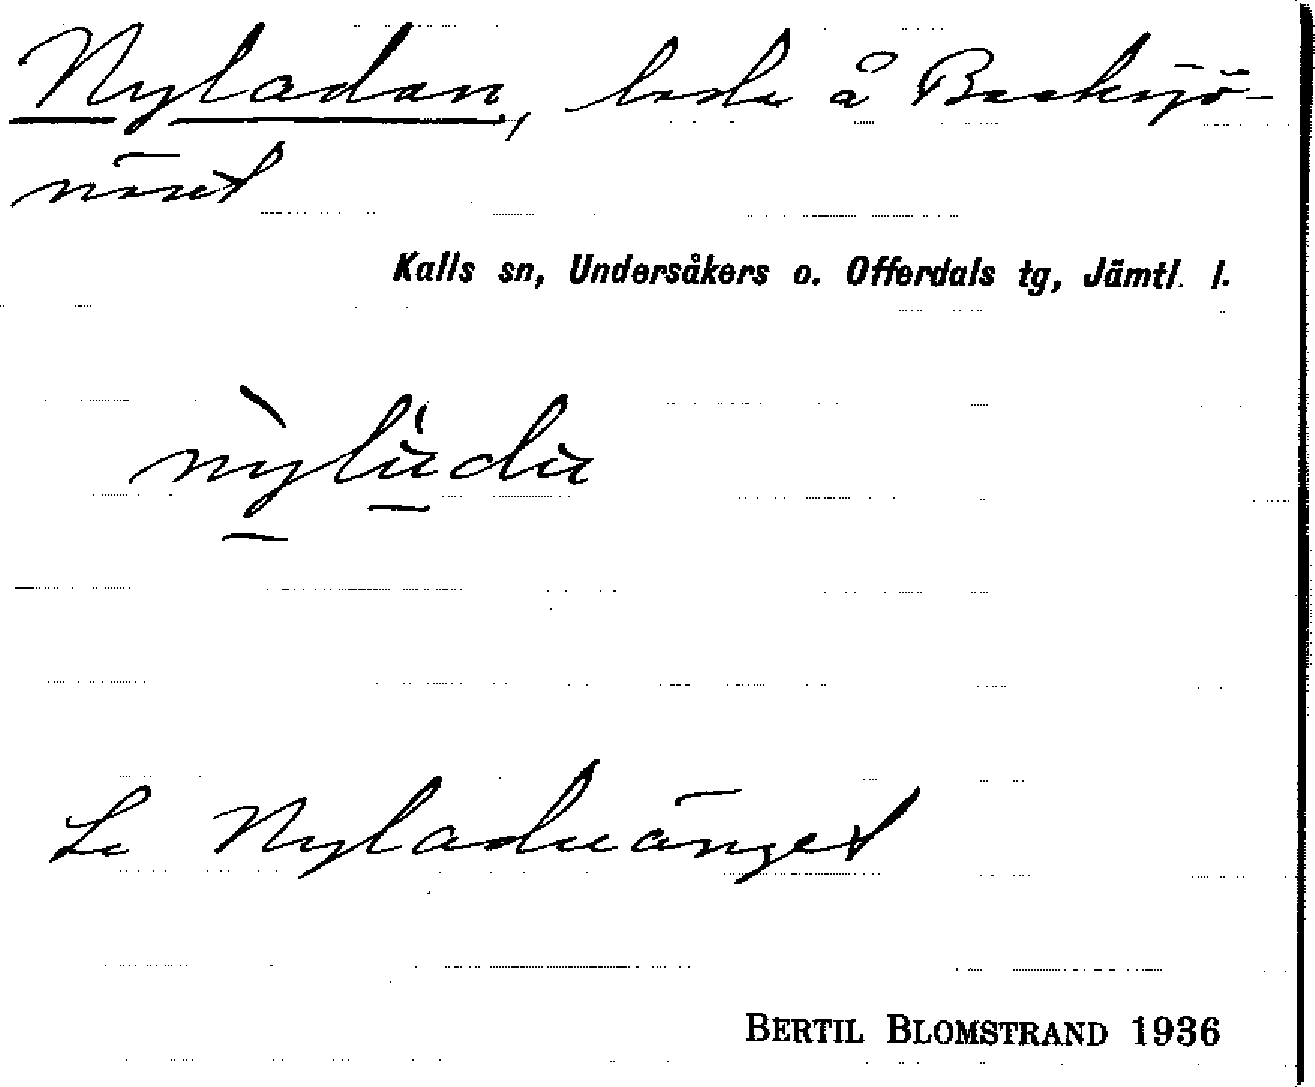 Nyladan, lada å Backsjö-
näset
Kalls sn, Undersåkers o. Offerdals tg, Jämtl. l.
Se Nyladuänget
BERTIL BLOMSTRAND 1936